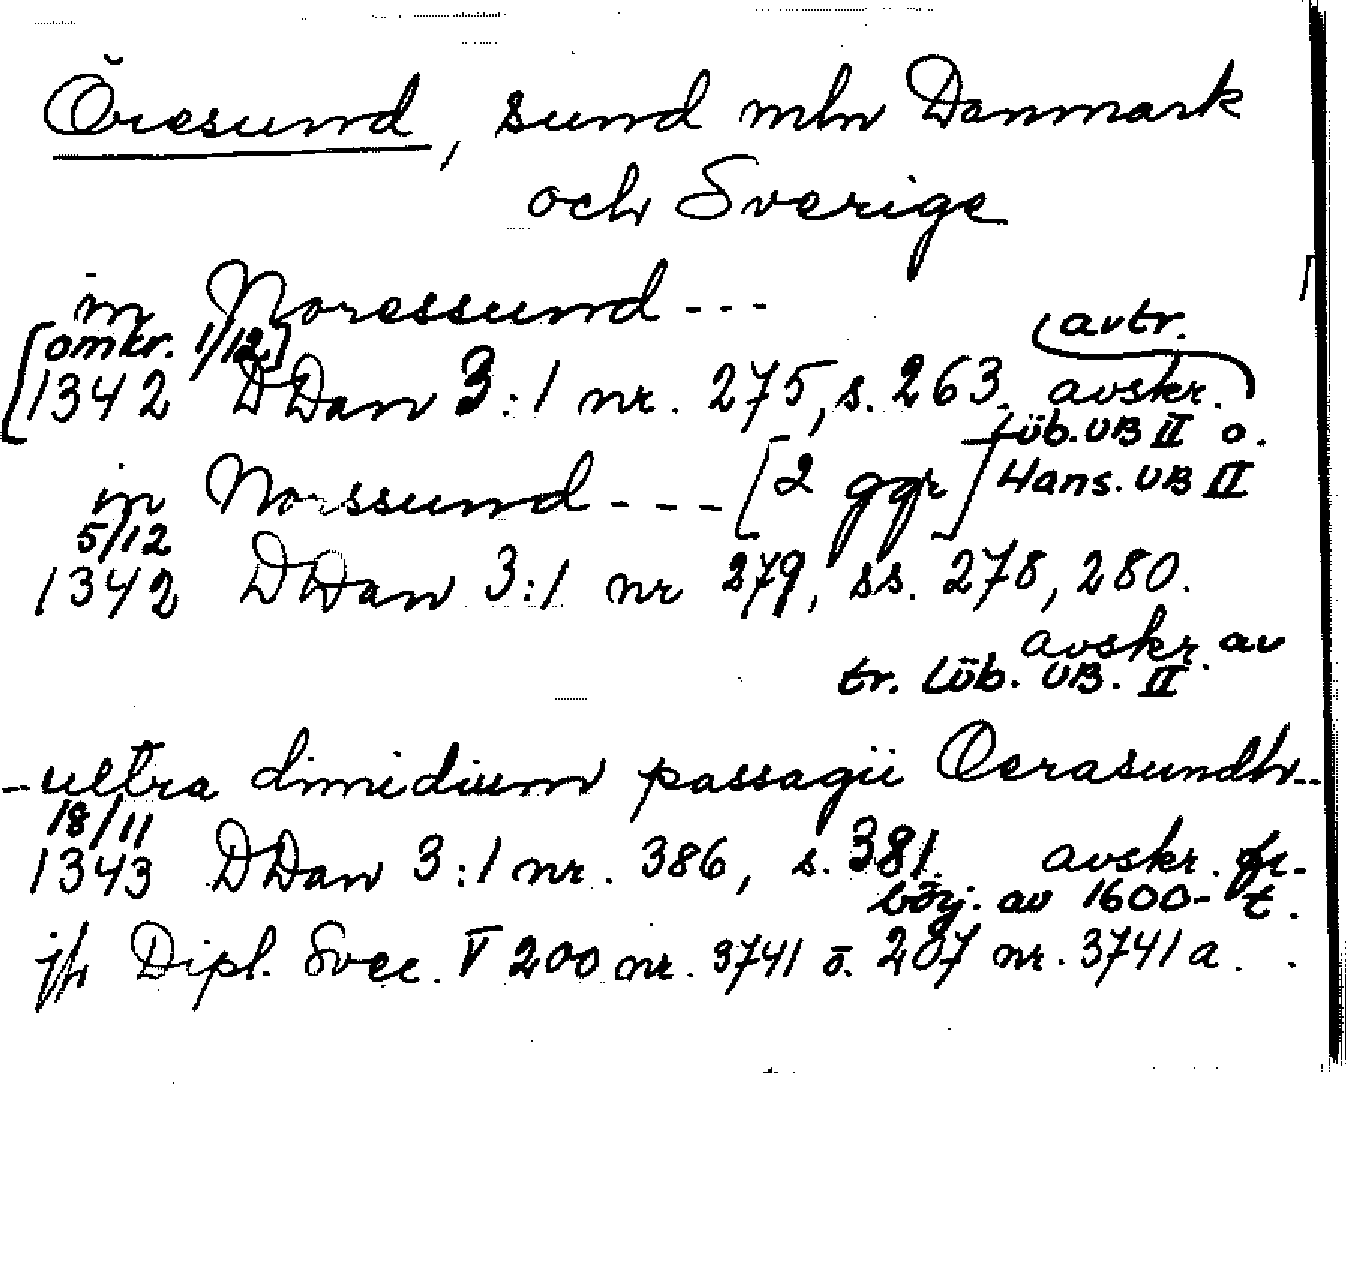 Öresund, sund mln Danmark
och Sverige
in Noressund ---
[omkr. 1/12] avtr.
1342 DDan 3:1 nr. 275, s. 263. avskr.
Lüb. UB II o.
in Norssund --- [2 ggr] Hans. UB II
5/12
1342 DDan 3:1 nr 279, ss. 278, 280.
avskr. av
tr. Lüb. UB. II
- ultra dimidium passagii Oerasundh --
18/11
1343 DDan 3:1 nr. 386, s. 381. avskr. fr.
börj. av 1600-t.
jfr Dipl. Svec. V 200 nr. 3741 o. 207 nr. 3741 a.